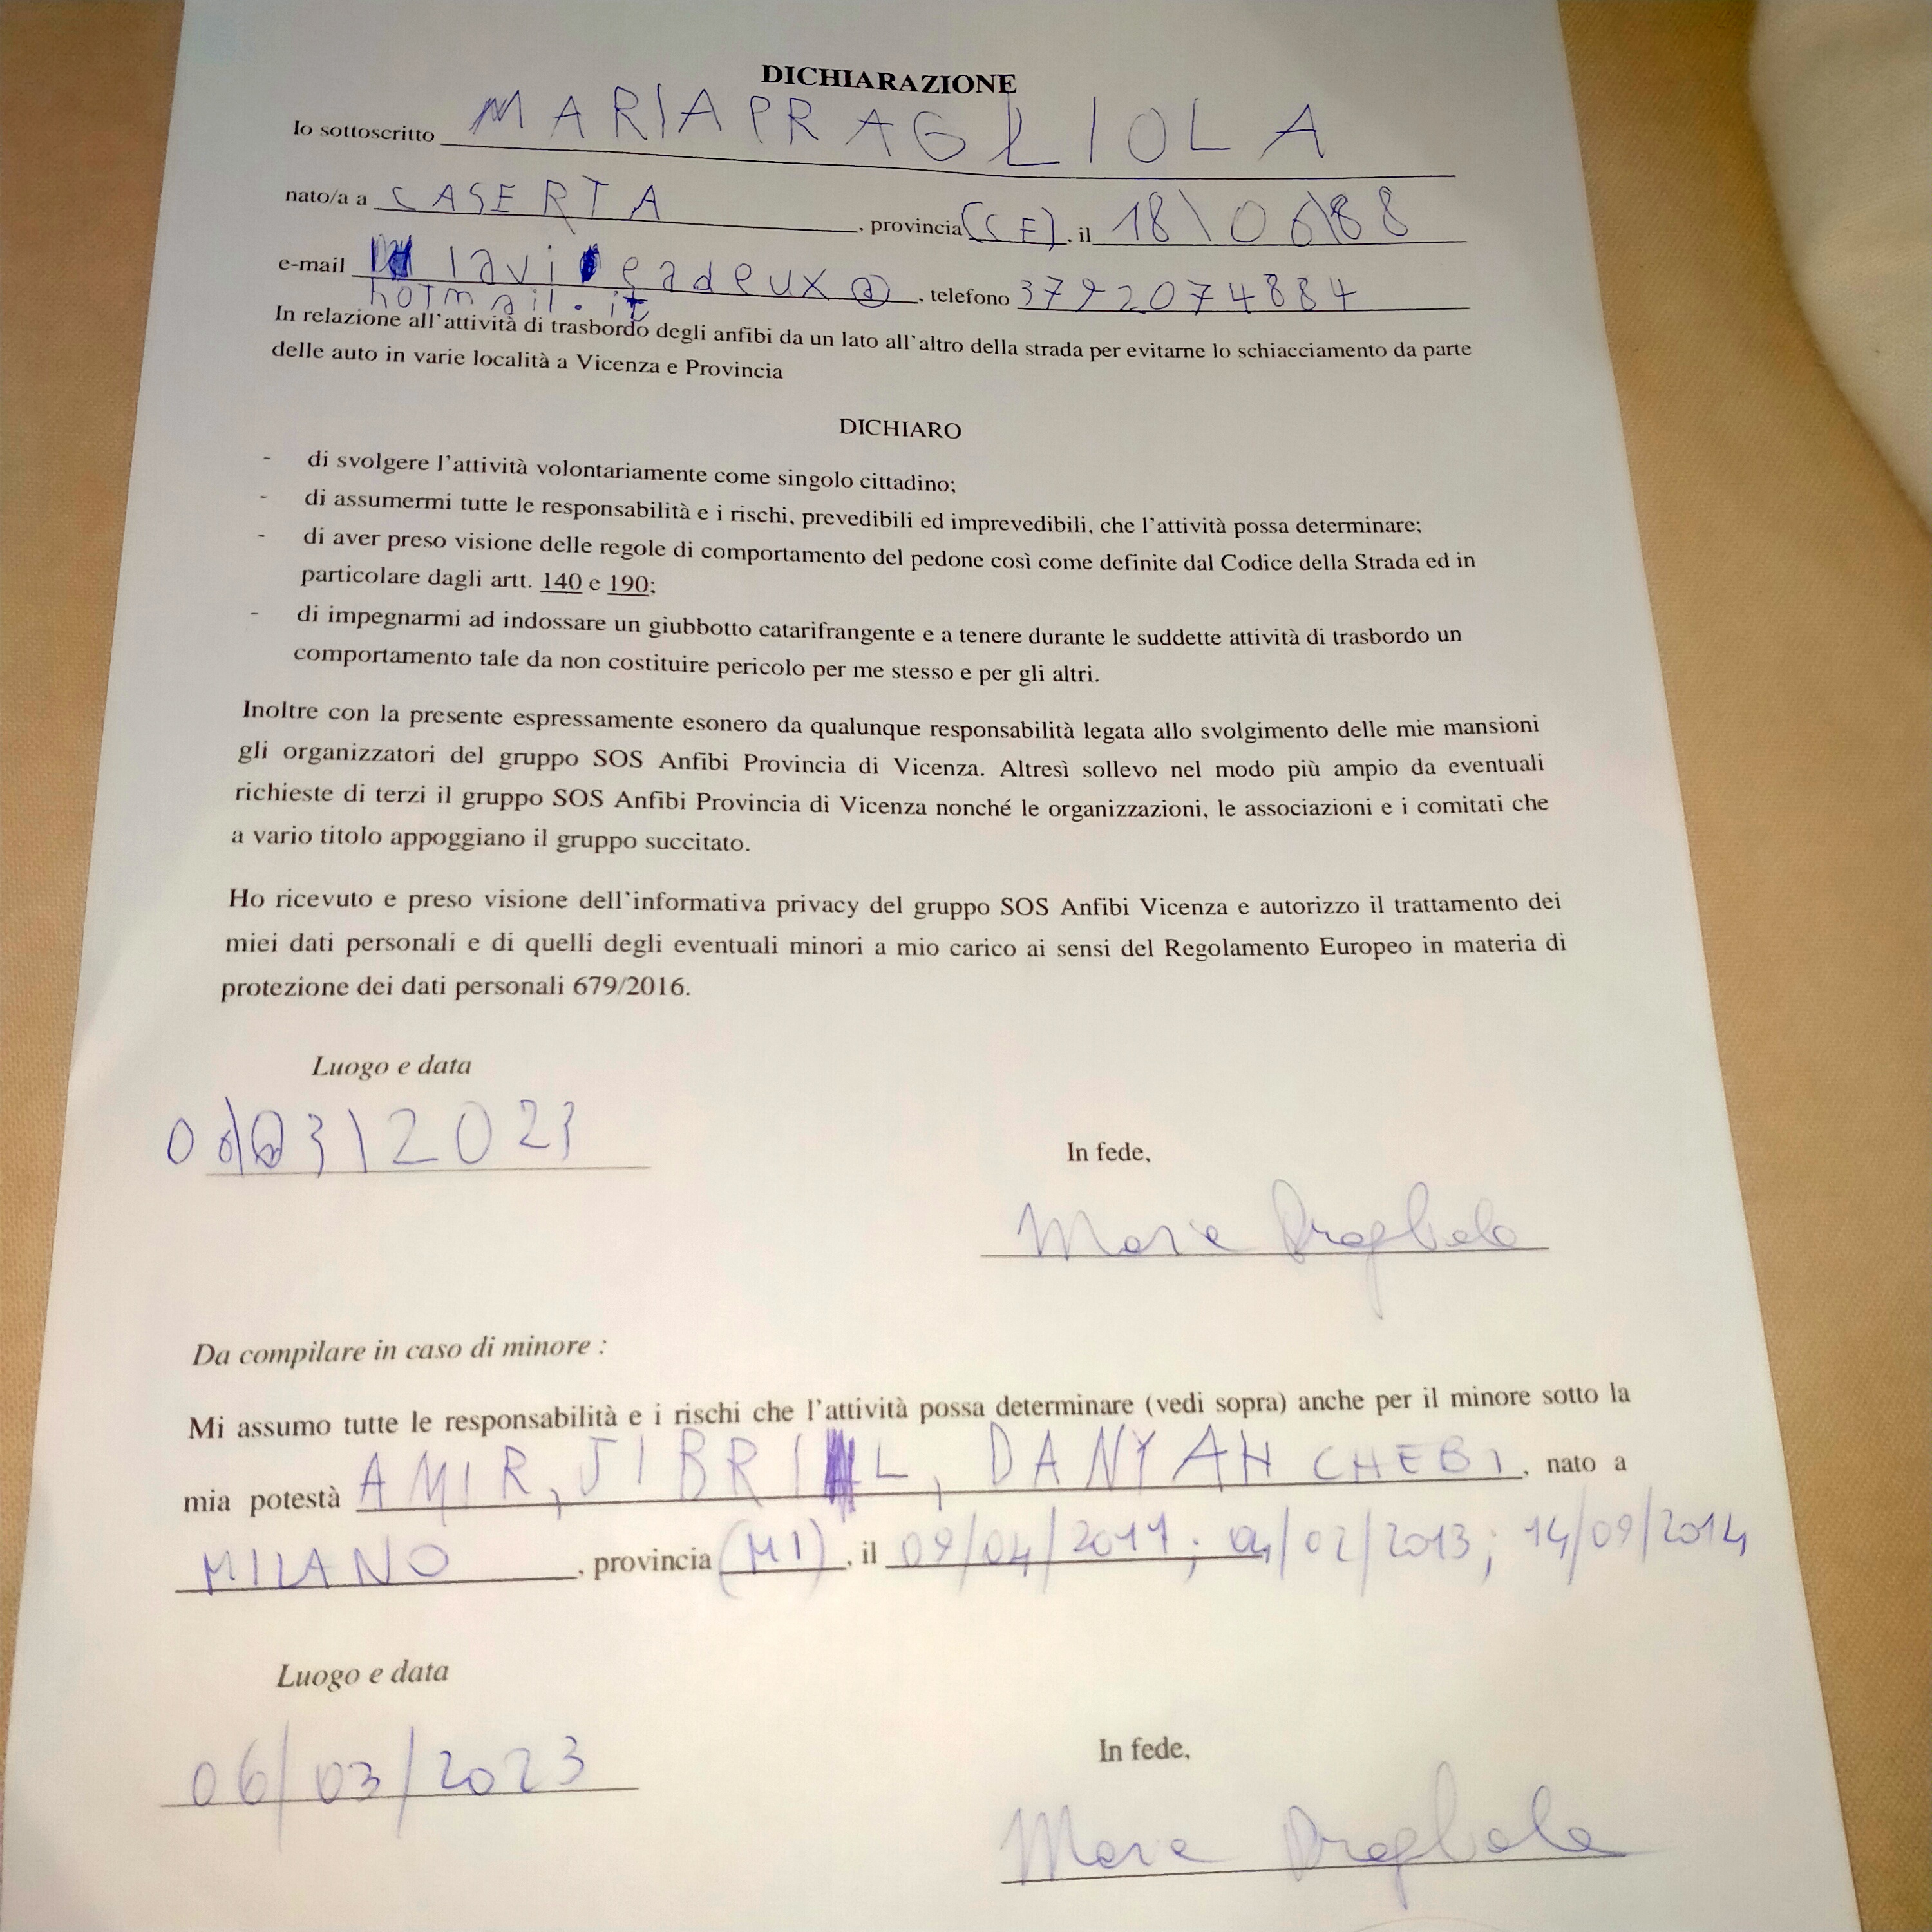 DICHIARAZIONE
Io sottoscritto MARIA PRAGLIOLA
nato/a a CASERTA, provincia (CE), il 18\06\88
e-mail lavieadeux@, telefono 3792074884
hotmail.it
In relazione all'attività di trasbordo degli anfibi da un lato all'altro della strada per evitarne lo schiacciamento da parte
delle auto in varie località a Vicenza e Provincia
DICHIARO
- di svolgere l'attività volontariamente come singolo cittadino;
- di assumermi tutte le responsabilità e i rischi, prevedibili ed imprevedibili, che l'attività possa determinare;
- di aver preso visione delle regole di comportamento del pedone così come definite dal Codice della Strada ed in
particolare dagli artt. 140 e 190;
- di impegnarmi ad indossare un giubbotto catarifrangente e a tenere durante le suddette attività di trasbordo un
comportamento tale da non costituire pericolo per me stesso e per gli altri.
Inoltre con la presente espressamente esonero da qualunque responsabilità legata allo svolgimento delle mie mansioni
gli organizzatori del gruppo SOS Anfibi Provincia di Vicenza. Altresì sollevo nel modo più ampio da eventuali
richieste di terzi il gruppo SOS Anfibi Provincia di Vicenza nonché le organizzazioni, le associazioni e i comitati che
a vario titolo appoggiano il gruppo succitato.
Ho ricevuto e preso visione dell'informativa privacy del gruppo SOS Anfibi Vicenza e autorizzo il trattamento dei
miei dati personali e di quelli degli eventuali minori a mio carico ai sensi del Regolamento Europeo in materia di
protezione dei dati personali 679/2016.
Luogo e data
06\03\2023
In fede,
Maria Pragliola
Da compilare in caso di minore :
Mi assumo tutte le responsabilità e i rischi che l'attività possa determinare (vedi sopra) anche per il minore sotto la
mia potestà AMIR, JIBRIL, DANYAH CHEBI, nato a
MILANO, provincia (MI), il 09/04/2011; 04/02/2013; 14/09/2014
Luogo e data
06/03/2023
In fede,
Maria Pragliola